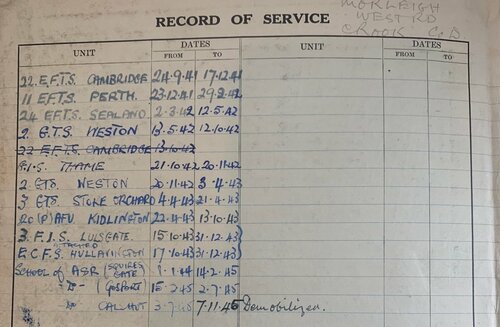 MORLEIGH
WEST RD
CROOK Co. D.
RECORD OF SERVICE
UNIT DATES UNIT DATES
FROM TO FROM TO
22. E.F.T.S. CAMBRIDGE 24.9.41 17.12.41
11 E.F.T.S. PERTH. 23.12.41 29.2.42
24 EFTS SEALAND 2.3.42 12.5.42
2. G.T.S. WESTON 13.5.42 12.10.42
22 E.F.T.S. CAMBRIDGE 13.10.42
G.I.S. THAME 21.10.42 20.11.42
2 GTS WESTON 20.11.42 3.4.43
3 GTS STOKE ORCHARD 4.4.43 21.4.43
20 (P) AFU KIDLINGTON 22.4.43 13.10.43
3. F.I.S. LULSGATE 15.10.43 31.12.43
ATTACHED
E.C.F.S. HULLAVINGTON 17.10.43 31.12.43
SCHOOL OF ASR (SQUIRES GATE) 1.1.44 14.2.45
-Do- (GOSPORT 15.2.45 2.7.45
-Do- CALSHOT 3.7.45 7.11.45 Demobilized.